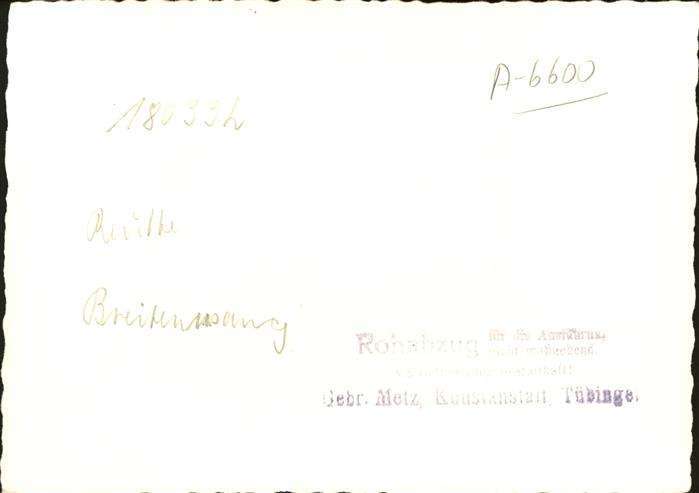 A-6600
180332
Reutte
Breitenwang
Rohabzug für die Ausführung
Gebr. Metz, Kunstanstalt, Tübinge.